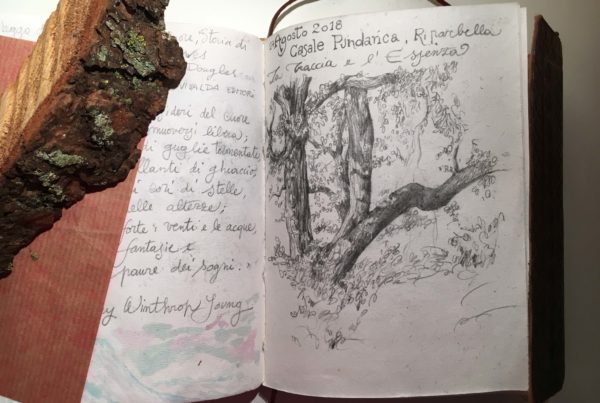 uggo
ore, Storia di
Douglas
VIVALDA EDITORI
ideri del cuore
muoversi libera;
i guglie tormentate,
llanti di ghiaccio,
i cori di stelle,
elle altezze;
forte i venti e le acque,
fantasie e
paure dei sogni."
ey Winthrop Young
Agosto 2018
Casale Pundarica, Riparbella
La Traccia e l'Essenza